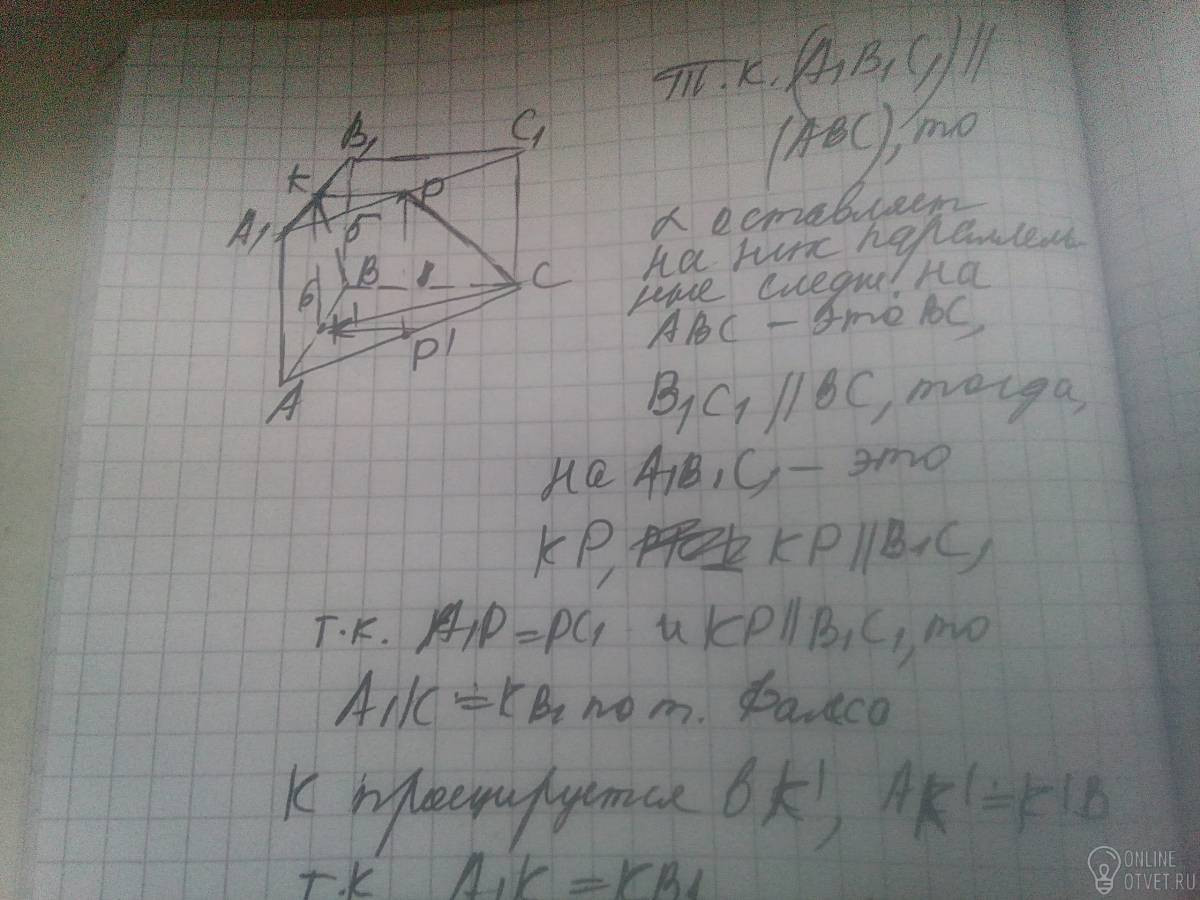 т.к. (A₁B₁C₁) ||
(ABC), то
α оставляет
на них параллель-
ные следы. на
ABC – это BC,
B₁C₁ || BC, тогда,
на A₁B₁C₁ – это
KP, KP || B₁C₁
т.к. A₁P = PC₁ и KP || B₁C₁, то
A₁K = KB₁ по т. Фалеса
K проецируется в K', AK' = K'B
т.к A₁K = KB₁
B₁
C₁
K
P
A₁
5
B
8
C
6
K'
P'
A
ONLINE
OTVET.RU